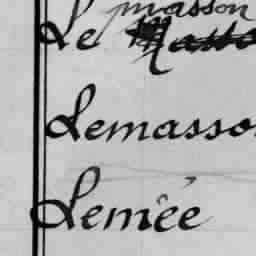 Le masson
Lemasson
Lemée